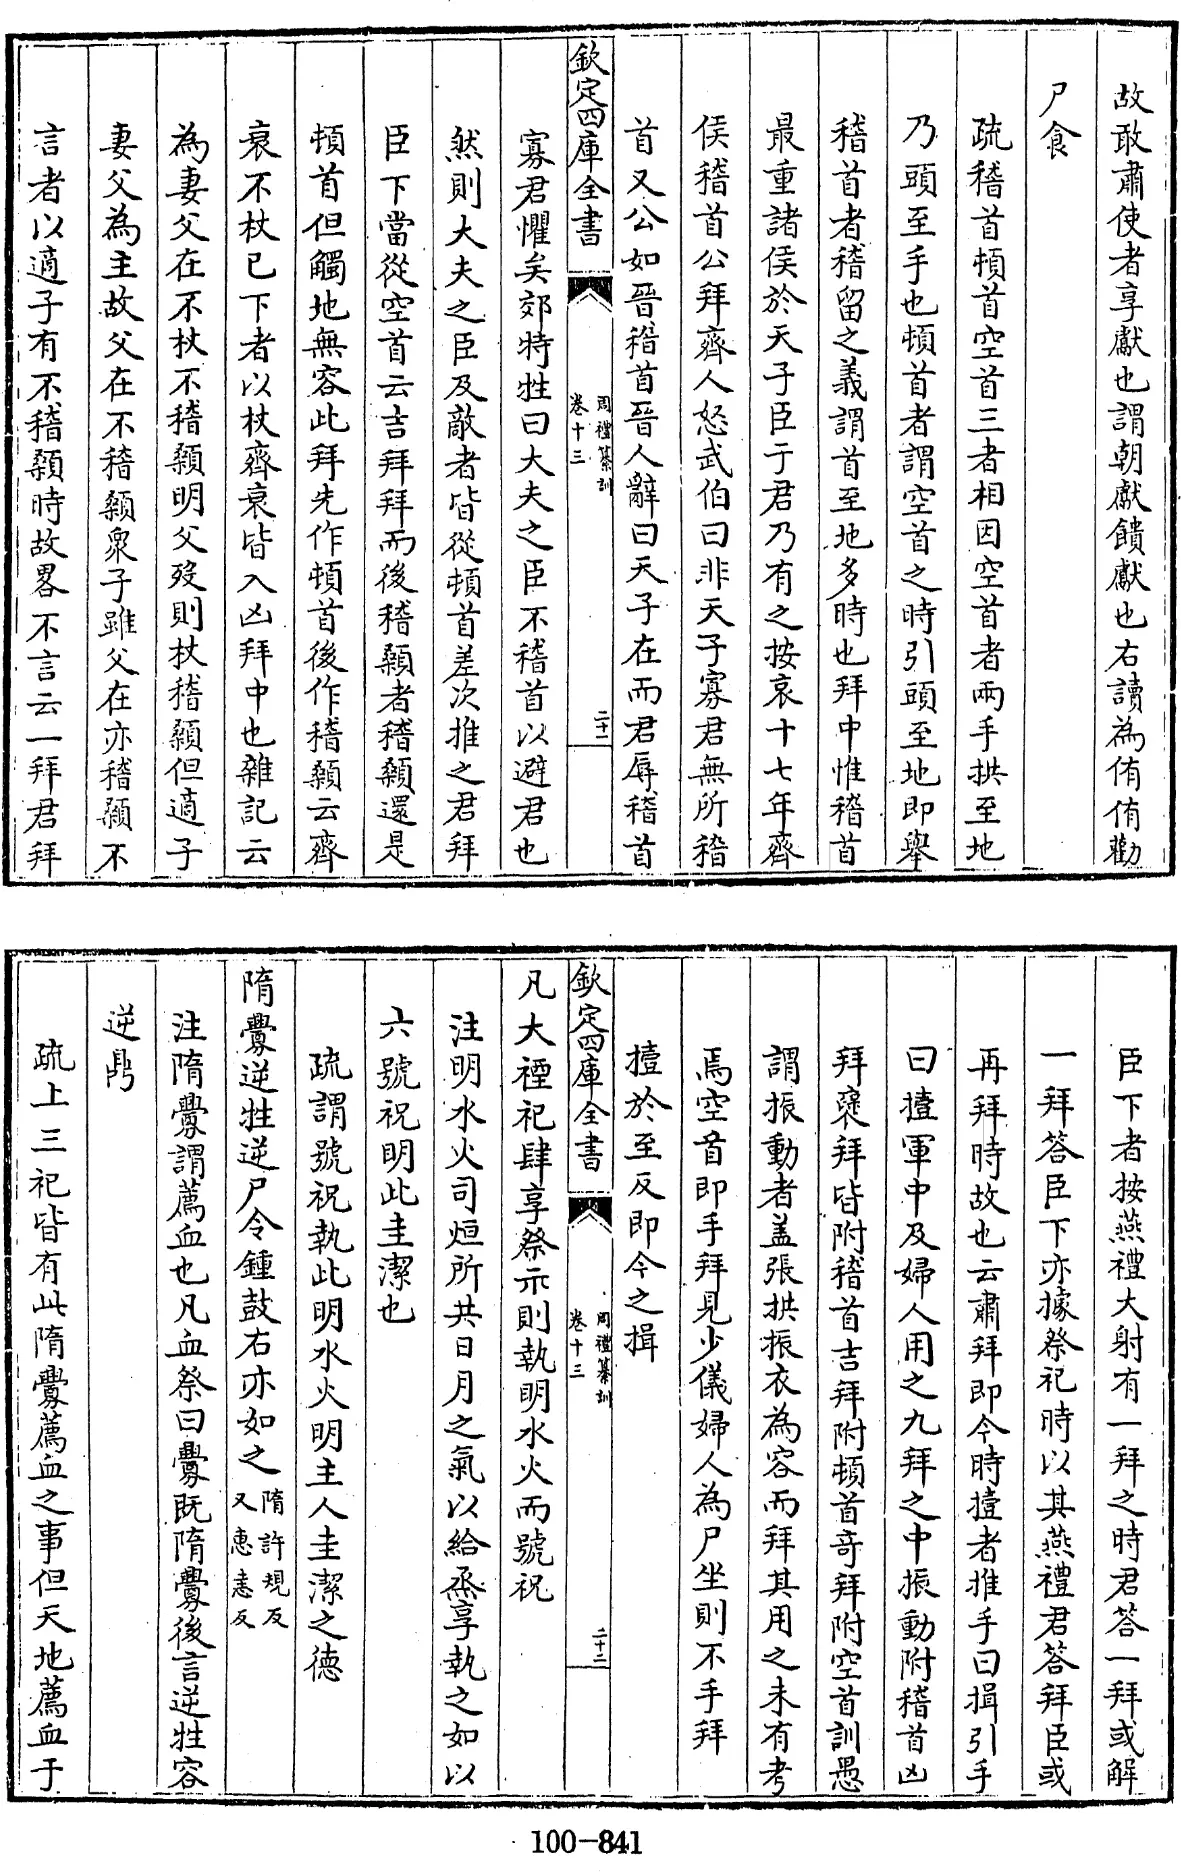 故敢肅使者享獻也謂朝獻饋獻也右讀為侑侑勸
尸食
疏稽首頓首空首三者相因空首者兩手拱至地
乃頭至手也頓首者謂空首之時引頭至地即舉
稽首者稽留之義謂首至地多時也拜中惟稽首
最重諸侯於天子臣于君乃有之按哀十七年齊
侯稽首公拜齊人怒武伯曰非天子寡君無所稽
首又公如晉稽首晉人辭曰天子在而君辱稽首
欽定四庫全書
周禮纂訓
卷十三
二十一
寡君懼矣郊特牲曰大夫之臣不稽首以避君也
然則大夫之臣及敵者皆從頓首差次推之君拜
臣下當從空首云吉拜拜而後稽顙者稽顙還是
頓首但觸地無容此拜先作頓首後作稽顙云齊
衰不杖已下者以杖齊衰皆入凶拜中也雜記云
為妻父在不杖不稽顙明父歿則杖稽顙但適子
妻父為主故父在不稽顙衆子雖父在亦稽顙不
言者以適子有不稽顙時故畧不言云一拜君拜
臣下者按燕禮大射有一拜之時君答一拜或解
一拜答臣下亦據祭祀時以其燕禮君答拜臣或
再拜時故也云肅拜即今時撎者推手曰揖引手
曰撎軍中及婦人用之九拜之中振動附稽首凶
拜褒拜皆附稽首吉拜附頓首奇拜附空首訓愚
謂振動者盖張拱振衣為容而拜其用之未有考
焉空首即手拜見少儀婦人為尸坐則不手拜
撎於至反即今之揖
欽定四庫全書
周禮纂訓
卷十三
二十二
凡大禋祀肆享祭示則執明水火而號祝
注明水火司烜所共日月之氣以給烝享執之如以
六號祝明此圭潔也
疏謂號祝執此明水火明主人圭潔之德
隋釁逆牲逆尸令鍾鼓右亦如之隋許規反又惠恚反
注隋釁謂薦血也凡血祭曰釁既隋釁後言逆牲容
逆鼎
疏上三祀皆有此隋釁薦血之事但天地薦血于
100-841